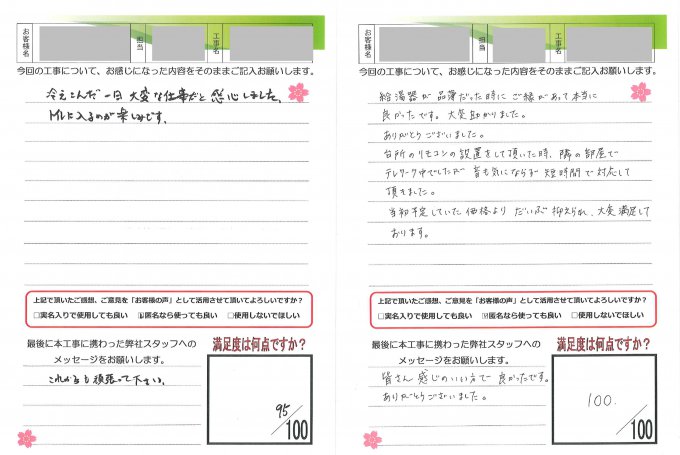 お客様名
担当
工事名
今回の工事について、お感じになった内容をそのままご記入お願いします。
冷えこんだ一日 大変な仕事だと感心しました。
に入るのが楽しみです。
上記で頂いたご感想、ご意見を「お客様の声」として活用させて頂いてよろしいですか？
□実名入りで使用しても良い ☑匿名なら使っても良い □使用しないでほしい
最後に本工事に携わった弊社スタッフへの
メッセージをお願いします。
これからも頑張って下さい。
満足度は何点ですか？
95/100
お客様名
担当
工事名
今回の工事について、お感じになった内容をそのままご記入お願いします。
給湯器が品薄だった時にご縁があって本当に
良かったです。大変助かりました。
ありがとうございました。
台所のリモコンの設置をして頂いた時、隣の部屋で
テレワーク中でしたが音も気にならず短時間で対応して
頂きました。
当初予定していた価格よりだいぶ抑えられ、大変満足して
おります。
上記で頂いたご感想、ご意見を「お客様の声」として活用させて頂いてよろしいですか？
□実名入りで使用しても良い ☑匿名なら使っても良い □使用しないでほしい
最後に本工事に携わった弊社スタッフへの
メッセージをお願いします。
皆さん感じのいい方で良かったです。
ありがとうございました。
満足度は何点ですか？
100/100